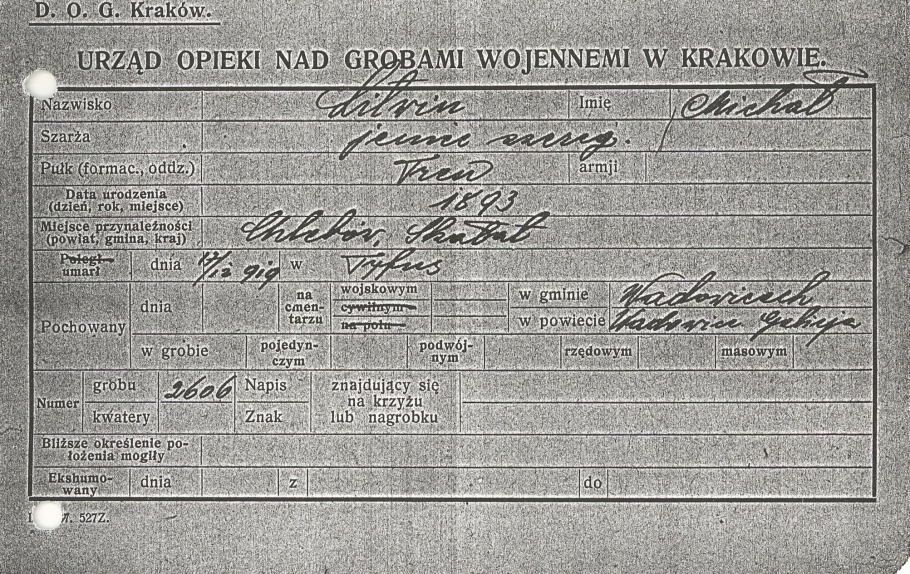 D. O. G. Kraków.
URZĄD OPIEKI NAD GROBAMI WOJENNEMI W KRAKOWIE.
Nazwisko Litwin Imię Michał
Szarża jeniec szereg.
Pułk (formac., oddz.) Tren armji
Data urodzenia (dzień, rok, miejsce) 1893
Miejsce przynależności (powiat, gmina, kraj) Skałat
Poległ umarł dnia 17/12 919 w Tyfus
Pochowany dnia na cmentarzu wojskowym cywilnym na polu w gminie Wadowicach
w powiecie Wadowice Galicja
w grobie pojedynczym podwójnym rzędowym masowym
Numer grobu 2606 Napis znajdujący się na krzyżu lub nagrobku
kwatery Znak
Bliższe określenie położenia mogiły
Ekshumowany dnia z do
527Z.